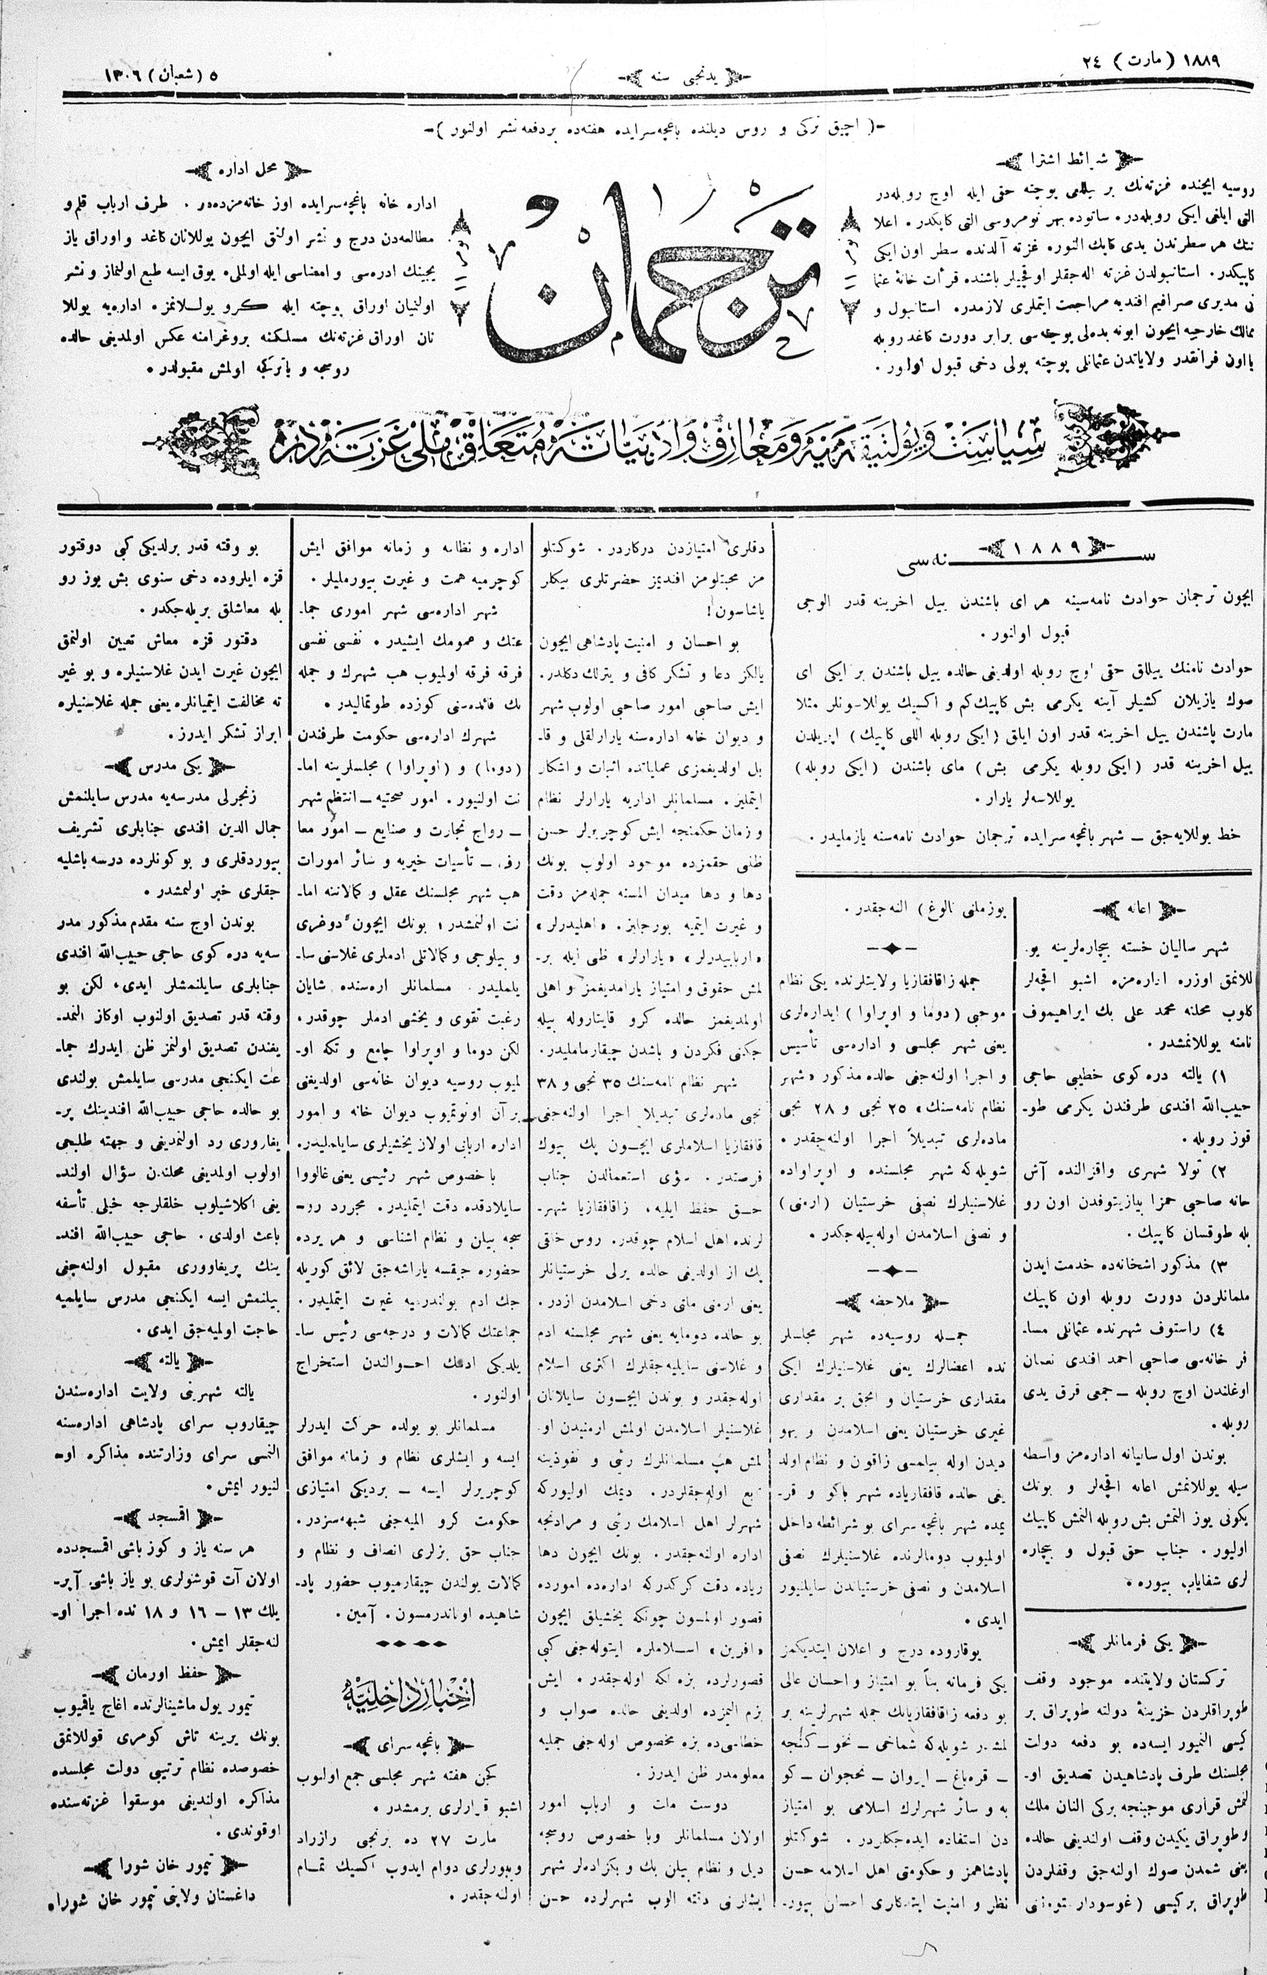 ١٨٨٩ (مارت) ٢٤
يدنجی سنه
٥ (شعبان) ١٣٠٦
(اچیق ترکی و روس دیلنده باغچه‌سرایده هفته‌ده بردفعه نشر اولنور)
شرائط اشترا
روسیه ایچنده غزته‌نك بر ییللمی بوچته حقی ایله اوچ روبله‌در
التی ایلغی ایکی روبله‌در. ساتوده بهر نومروسی التی کاپکدر. اعلا
ننك هر سطرندن یدی کاپك النور. غزته آلدنده سطر اون ایکی
کاپیکدر. استانبولدن غزته اله‌جقلر اوقچیلر باشنده قرأت خانهٔ عثما
نی مدیری صرافیم افندیه مراجعت ایتملری لازمدر. استانبول و
ممالك خارجیه ایچون ابونه بدهلی بوچته‌سی برابر دورت کاغد روبله
یا اون فرانقدر ولایاتدن عثمانلی پوچته پولی دخی قبول اولنور.
نومرو ١١
ترجمان
١٣٠٠
نومرو ١١
محل اداره
اداره خانه باغچه‌سرایده اوز خانه‌مزده‌در. طرف ارباب قلم و
مطالعه‌دن درج و نشر اولنق ایچون یوللانان کاغد و اوراق یاز
یجینك ادره‌سی و امضاسی ایله اولملی. یوق ایسه طبع اولنماز و نشر
اولنمیان اوراق پوچته ایله کرو یوللانمز. اداره‌یه یوللا
نان اوراق غزته‌نك مسلکنه پروغرامنه عکس اولمدیغی حالده
روسجه و یا ترکجه اولمش مقبولدر.
سیاست و پولتیقه‌یه و معارف و ادبیاته متعلق ملی غزته‌در
سنه‌سی ١٨٨٩
ایچون ترجمان حوادث نامه‌سینه هر ای باشندن ییل اخرینه قدر الوجی
قبول اولنور.
حوادث نامه‌نك ییللق حقی اوچ روبله اولدیغی حالده ییل باشندن بر ایکی ای
صوك یازیلان کشیلر آینه یکرمی بش کاپیك کم و اکسیك یوللاسونلر مثلا
مارت باشندن ییل اخرینه قدر اون ایلق (ایکی روبله اللی کاپیك) اپریلدن
ییل اخرینه قدر (ایکی روبله یکرمی بش) مای باشندن (ایکی روبله)
یوللاسه‌لر یارار.
خط یوللایه‌جق ــ شهر باغچه سرایده ترجمان حوادث نامه‌سنه یازملیدر.
اعانه
شهر سالیان خسته بیچاره‌لرینه یو
للانمق اوزره اداره‌مزه اشبو اقچه‌لر
کلوب محلنه محمد علی بك ابراهیموف
نامنه یوللانمشدر.
١) یالته دره کوی خطیبی حاجی
حبیب‌الله افندی طرفندن یکرمی طو‌ــ
قوز روبله.
٢) تولا شهری واقزالنده آش
خانه صاحبی حمزا بیازیتوفدن اون رو
بله طوقسان کاپیك.
٣) مذکور اشخانه‌ده خدمت ایدن
ملمانلردن دورت روبله اون کاپیك
٤) راستوف شهرنده عثمانلی مسا‌ــ
فر خانه‌سی صاحبی احمد افندی نعمان
اوغلندن اوچ روبله ــ جمعی قرق یدی
روبله.
بوندن اول سالیانه اداره‌مز واسطه
سیله یوللانمش اعانه اقچه‌لر و بونك
یکونی یوز التمش بش روبله التمش کاپیك
اولیور. جناب حق قبول و بیچاره
لری شفایاب بیوره.
یکی فرمانلر
ترکستان ولایتنده موجود وقف
طوپراقلردن خزینهٔ دولته طوپراق بر
کیسی النمیور ایسه‌ده بو دفعه دولت
مجلسنك طرف پادشاهیدن تصدیق او‌ــ
لنمش قراری موجبنجه برکی النان ملك
و طوپراق یکیدن وقف اولندیغی حالده
یعنی شمدن صوك اوله‌جق وقفلردن
طوپراق برکیسی (غوسودارستوه‌ننی
یوزمانی نالوغ) النه‌جقدر.
جمله زاقافقازیا ولایتلرنده یکی نظام
موجبی (دوما و اوپراوا) ایداره‌لری
یعنی شهر مجلسی و اداره‌سی تأسیس
و اجرا اوله‌جغی حالده مذکور «شهر
نظام نامه‌سنك» ٢٥ نجی و ٢٨ نجی
ماده‌لری تبدیلاً اجرا اوله‌جقدر.
شویله‌که شهر مجلسنده و اوپراواده
غلاسنیلرك نصفی خرستیان (ارمنی)
و نصفی اسلامدن اوله بیله‌جکدر.
ملاحظه
جمله روسیه‌ده شهر مجلسلر
نده اعضالرك یعنی غلاسنیلرك ایکی
مقداری خرستیان و انجق بر مقداری
غیری خرستیان یعنی اسلامدن و یهو
دیدن اوله بیلمسی زاقون و نظام اولد
یغی حالده قافقازیاده شهر باکو و قر‌ــ
یمده شهر باغچه سرای بو شرائطه داخل
اولمیوب دومالرنده غلاسنیلرك نصفی
اسلامدن و نصفی خرستیاندن سایلنیور
ایدی.
یوقاروده درج و اعلان ایتدیکمز
یکی فرمانه بناً بو امتیاز و احسان عالی
بو دفعه زاقافقازیانك جمله شهرلرینه بر
لمشدر شویله‌که شماخی ــ نخو ــ کنجه
ــ قره‌باغ ــ ایروان ــ نخجوان ــ کو
به و سائر شهرلرك اسلامی بو امتیاز
دن استفاده ایده‌جکلردر. شوکتلو
پادشاهمز و حکومتی اهل اسلامه حسن
نظر و امنیت ایتدکاری احسان بیور‌ــ
دقلری امتیازدن درکاردر. شوکتلو
مز محبتلومز افندیمز حضرتلری بیکلر
یاشاسون!
بو احسان و امنیت پادشاهی ایچون
یالکز دعا و تشکر کافی و یترلك دکلدر.
ایش صاحبی امور صاحبی اولوب شهر
و دیوان خانه اداره‌سنه یارارلقلی و قا‌ــ
بل اولدیغمزی عملیاتده اثبات و اشکار
ایتملیز. مسلمانلر اداریه یارارلر نظام
و زمان حکمنجه ایش کوچریرلر حسن
ظنی حقمزده موجود اولوب بونك
دها و دها میدان المسنه جمله‌مز دقت
و غیرت ایتمیه بورجلیز. «اهلیدرلر»
«اربابیدرلر» «یارارلر» ظنی ایله بر‌ــ
لمش حقوق و امتیاز یارامدیغمز و اهلی
اولمدیغمز حالده کرو قایتاروله بیله
جکنی فکردن و باشدن چیقارمامالیدر.
شهر نظام نامه‌سنك ٣٥ نجی و ٣٨
نجی ماده‌لری تبدیلا اجرا اوله‌جغی
قافقازیا اسلاملری ایچون پك بیوك
فرصتدر. سؤی استعمالدن جناب
حق حفظ ایلیه. زاقافقازیا شهر‌ــ
لرنده اهل اسلام چوقدر. روس خلقی
پك از اولدیغی حالده یرلی خرستیانلر
یعنی ارمنی ملتی دخی اسلامدن ازدر.
بو حالده دومایه یعنی شهر مجلسنه ادم
و غلاسنی سایلیه‌جقلرك اکثری اسلام
اوله‌جقدر و بوندن ایچون سایلانان
غلاسنیلر اسلامدن اولمش ارمنیدن او‌ــ
لمش هپ مسلمانلرك رئیی و نفوذینه
تابع اوله‌جقلردر. دیمك اولیورکه
شهرلر اهل اسلامك رئیی و مرادنجه
اداره اولنه‌جقدر. بونك ایچون دها
زیاده دقت کرکدرکه اداره‌ده امورده
قصور اولمسون چونکه یخشیلق ایچون
«افرین» اسلاملره ایتوله‌جغی کبی
قصورلرده بزه تکه اوله‌جقدر. ایش
بزم المزده اولدیغی حالده صواب و
خطاسی‌ده بزه مخصوص اوله‌جغی جمله‌یه
معلومدر ظن ایدرز.
دوست ملت و ارباب امور
اولان مسلمانلر وبا خصوص روسجه
دیل و نظام بیلن بك و بکزاده‌لر شهر
ایشلرنی دقته الوب شهرلرده حسن
اداره و نظامه و زمانه موافق ایش
کوچرمیه همت و غیرت بیورملیلر.
شهر اداره‌سی شهر اموری جما‌ــ
عتك و عمومك ایشیدر. نفسی نفسی
فرقه فرقه اولمیوب هپ شهرك و جمله
نك فائده‌سنی کوزده طوتمالیدر.
شهرك اداره‌سی حکومت طرفندن
(دوما) و (اوپراوا) مجلسلرینه اما‌ــ
نت اولنیور. امور صحتیه ــ انتظم شهر
ــ رواج تجارت و صنایع ــ امور معا
رف ــ تأسیات خیریه و سائر امورات
هپ شهر مجلسنك عقل و کمالاتنه اما‌ــ
نت اولنمشدر؛ بونك ایچون دوغری
و بیلوجی و کمالاتلی ادملری غلاسنی سا‌ــ
یلملیدر. مسلمانلر اره‌سنده شایان
رغبت تقوی و یخشی ادملر چوقدر.
لکن دوما و اوپراوا جامع و تکه او‌ــ
لمیوب روسیه دیوان خانه‌سی اولدیغی
بر آن اونوتمیوب دیوان خانه و امور
اداره اربابی اولان یخشیلری سایلملیدر.
با خصوص شهر رئیسی یعنی غالووا
سایلادقده دقت ایتملیدر. مجررد رو‌ــ
سجه بیان و نظام اشناسی و هر یرده
حضوره چیقسه یاراشه‌جق لائق کوریله
جك ادم بولندرمیه غیرت ایتملیدر.
جماعتك کمالات و درجه‌سی رئیس سا‌ــ
یلدیکی ادمك احوالندن استخراج
اولنور.
مسلمانلر بو یولده حرکت ایدرلر
ایسه و ایشلری نظام و زمانه موافق
کوچریرلر ایسه ــ بردیکی امتیازی
حکومت کرو المیه‌جغی شبهه‌سزدر.
جناب حق بزلری انصاف و نظام و
کمالات یولندن چیقارمیوب حضور پاد‌ــ
شاهیده اوتاندرمسون. آمین.
اخبار داخلیه
باغچه سرای
کچن هفته شهر مجلسی جمع اولنوب
اشبو قرارلری برمشدر.
مارت ٢٧ ده برنجی رازراد
ویبورلری دوام ایدوب اکسیك تمام
اولنه‌جقدر.
بو وقته قدر برلدیکی کبی دوقتور
قزه ایلروده دخی سنوی بش یوز رو
بله معاشلق بریله‌جکدر.
دقتور قزه معاش تعیین اولنمق
ایچون غیرت ایدن غلاسنیلره و بو غیر
ته مخالفت ایتمیانلره یعنی جمله غلاسنیلره
ابراز تشکر ایدرز.
یکی مدرس
زنجرلی مدرسه‌یه مدرس سایلنمش
جمال الدین افندی جنابلری تشریف
بیوردقلری و بو کونلرده درسه باشلیه
جقلری خبر اولنمشدر.
بوندن اوچ سنه مقدم مذکور مدر
سه‌یه دره کوی حاجی حبیب‌الله افندی
جنابلری سایلنمشلر ایدی. لکن بو
وقته قدر تصدیق اولنوب اوکاز النمد‌ــ
یغندن تصدیق اولنمز ظن ایدرك جما‌ــ
عت ایکنجی مدرسی سایلمش بولندی
بو حالده حاجی حبیب‌الله افندینك پر‌ــ
یغاروری رد اولنمدیغی و جهته طلبجی
اولوب اولمدیغی محلندن سؤال اولند‌ــ
یغی اکلاشیلوب خلقلرجه خیلی تأسفه
باعث اولدی. حاجی حبیب‌الله افند‌ــ
ینك پریغاووری مقبول اوله‌جغی
بیلنمش ایسه ایکنجی مدرس سایلمیه
حاجت اولمیه‌جق ایدی.
یالته
یالته شهرینی ولایت اداره‌سندن
چیقاروب سرای پادشاهی اداره‌سنه
النمسی سرای وزارتنده مذاکره او‌ــ
لنیور ایمش.
اقمسجد
هر سنه یاز و کوز باشی اقمسجدده
اولان آت قوشولری بو یاز باشی آپر‌ــ
یلك ١٣ ــ ١٦ و ١٨ نده اجرا او‌ــ
لنه‌جقلر ایمش.
حفظ اورمان
تیمور یول ماشینالرنده اغاج یاقمیوب
بونك یرینه تاش کومری قوللانمق
خصوصده نظام ترتیبی دولت مجلسده
مذاکره اولندیغی موسقوا غزته‌سنده
اوقوندی.
تیمور خان شورا
داغستان ولایتی تیمور خان شوراه